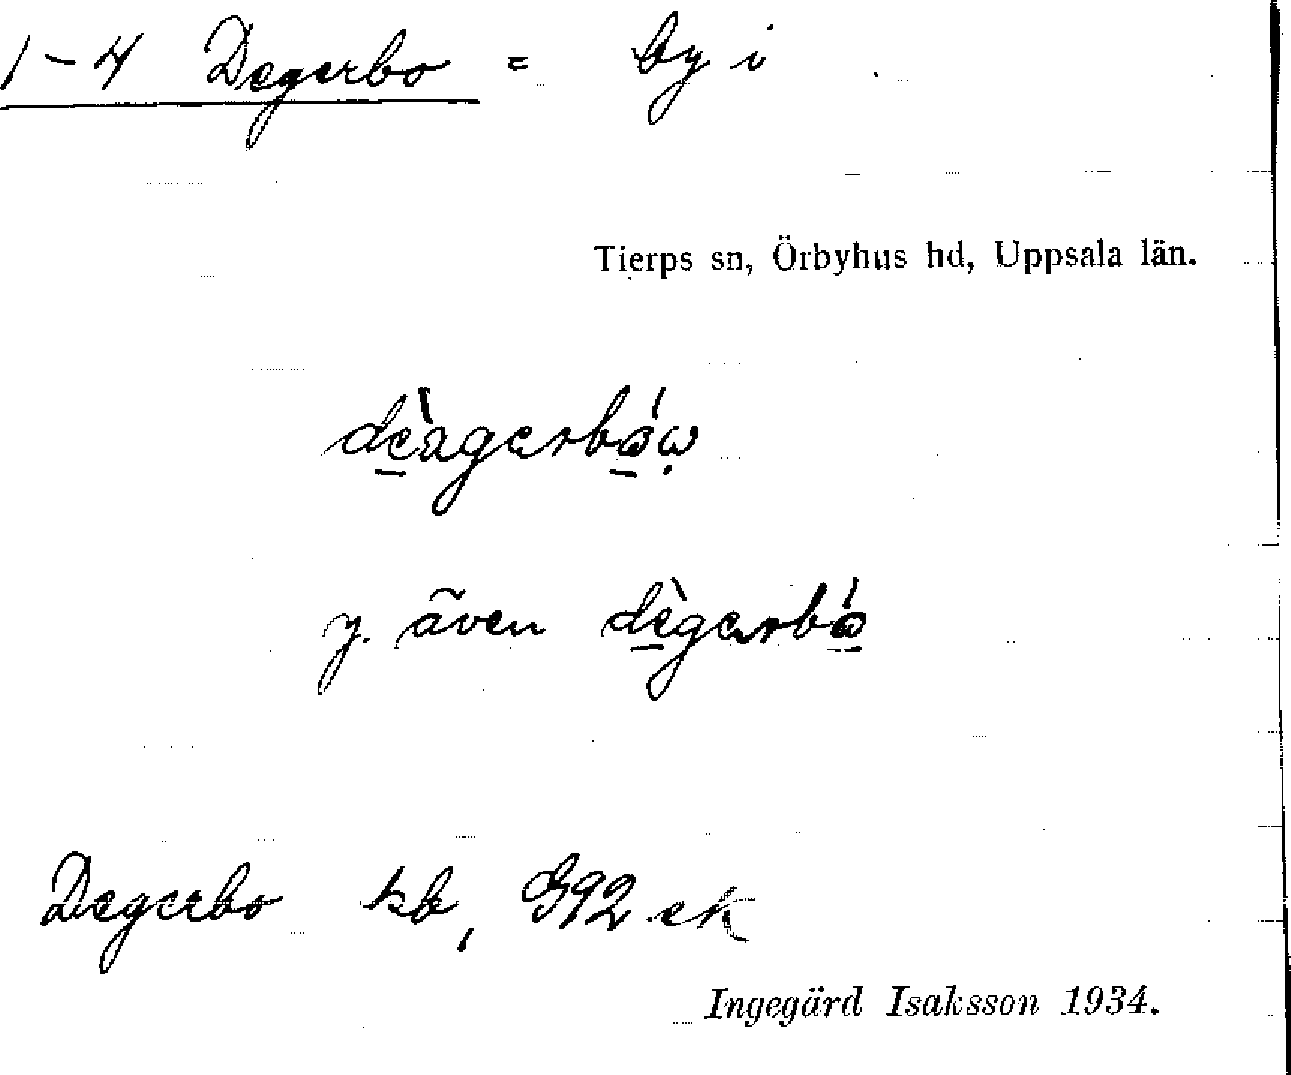 1-4 Degerbo = by i
Tierps sn, Örbyhus hd, Uppsala län.
y. även
Degerbo kb, G92 ek
Ingegärd Isaksson 1934.